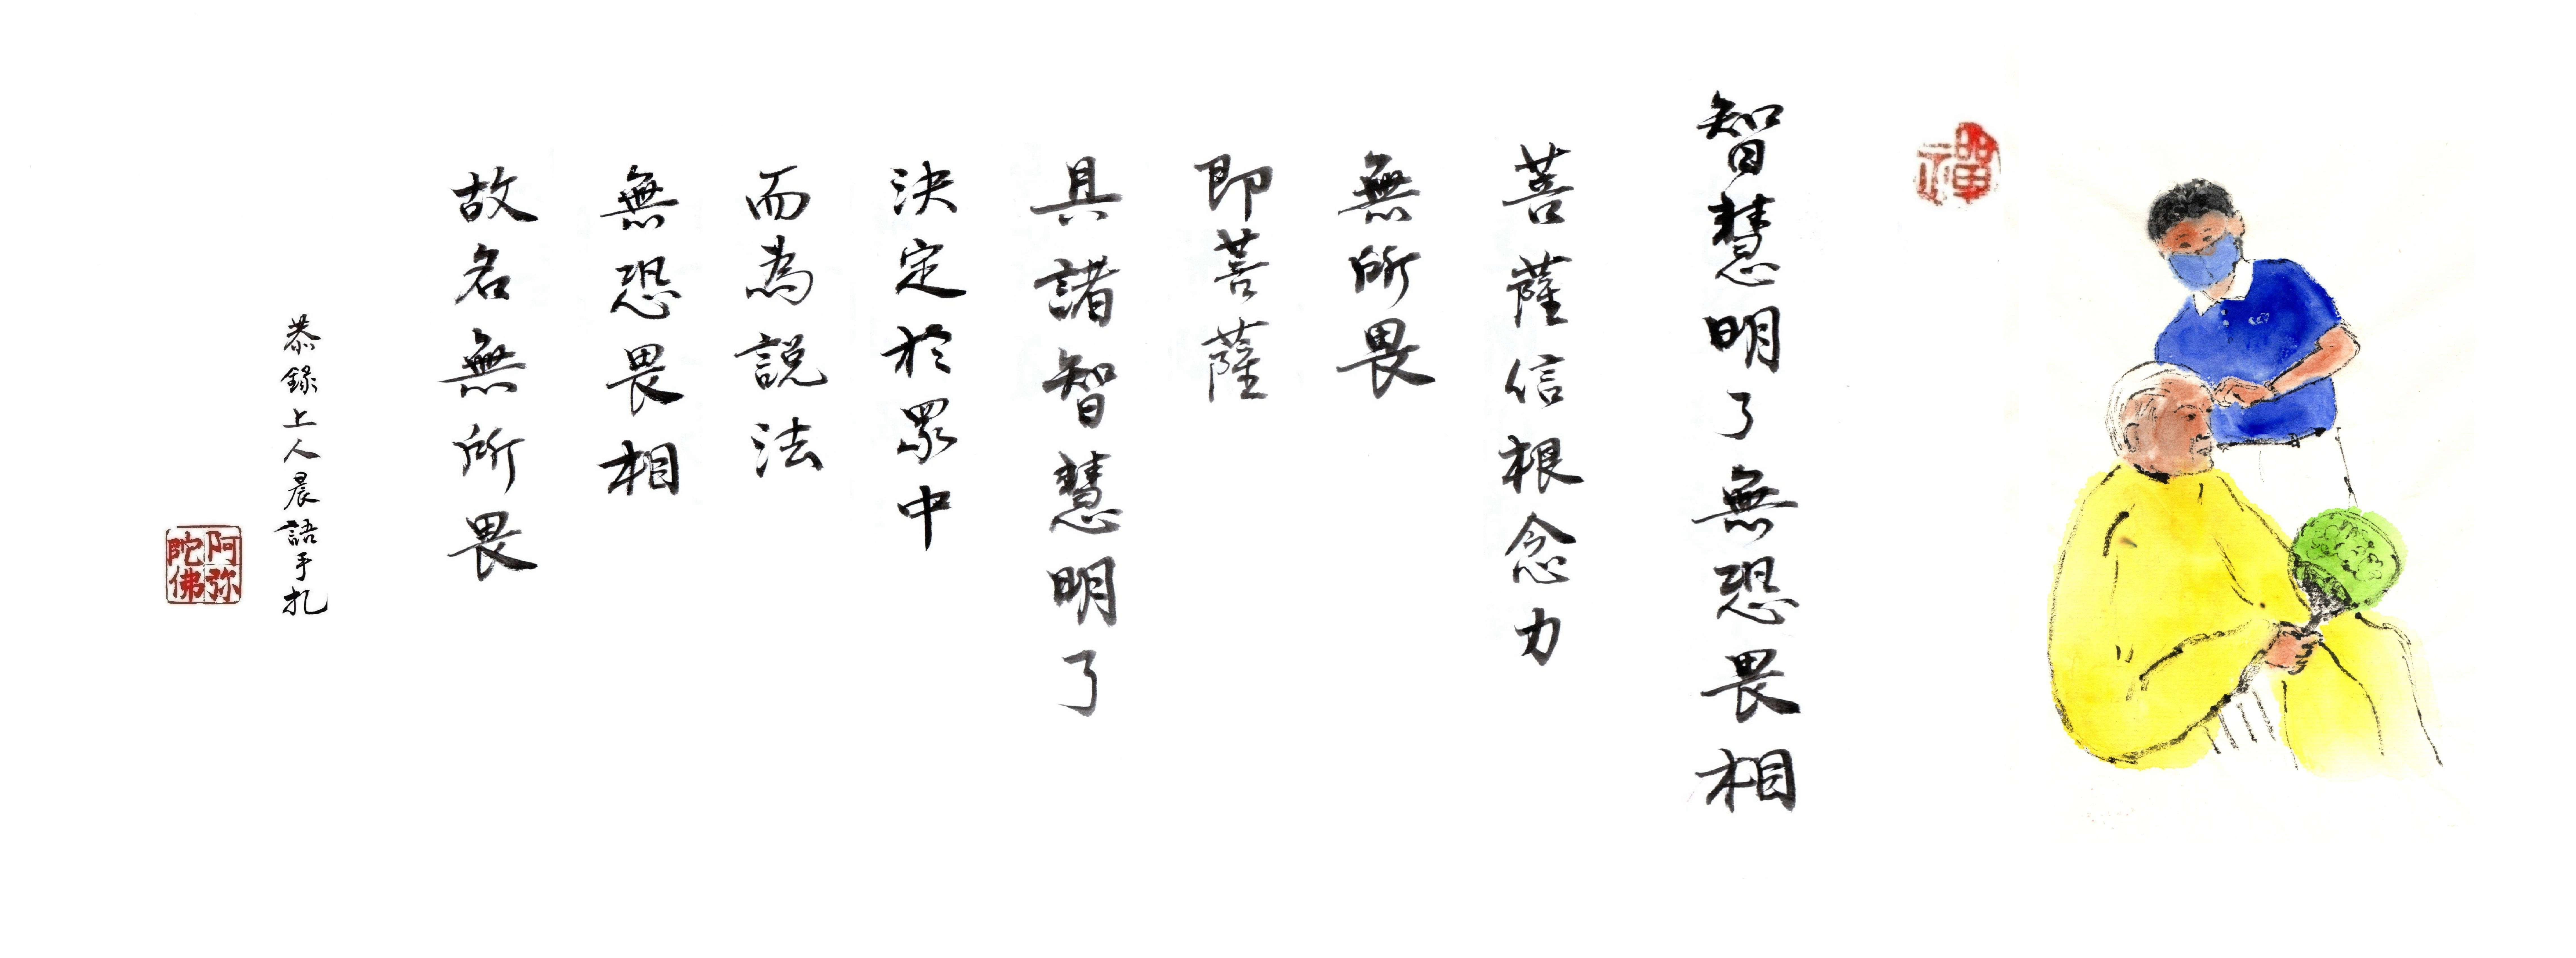 禪
智慧明了無恐畏相
菩薩信根念力
無所畏
即菩薩
具諸智慧明了
決定於眾中
而為說法
無恐畏相
故名無所畏
恭錄上人晨語手札
阿弥陀佛